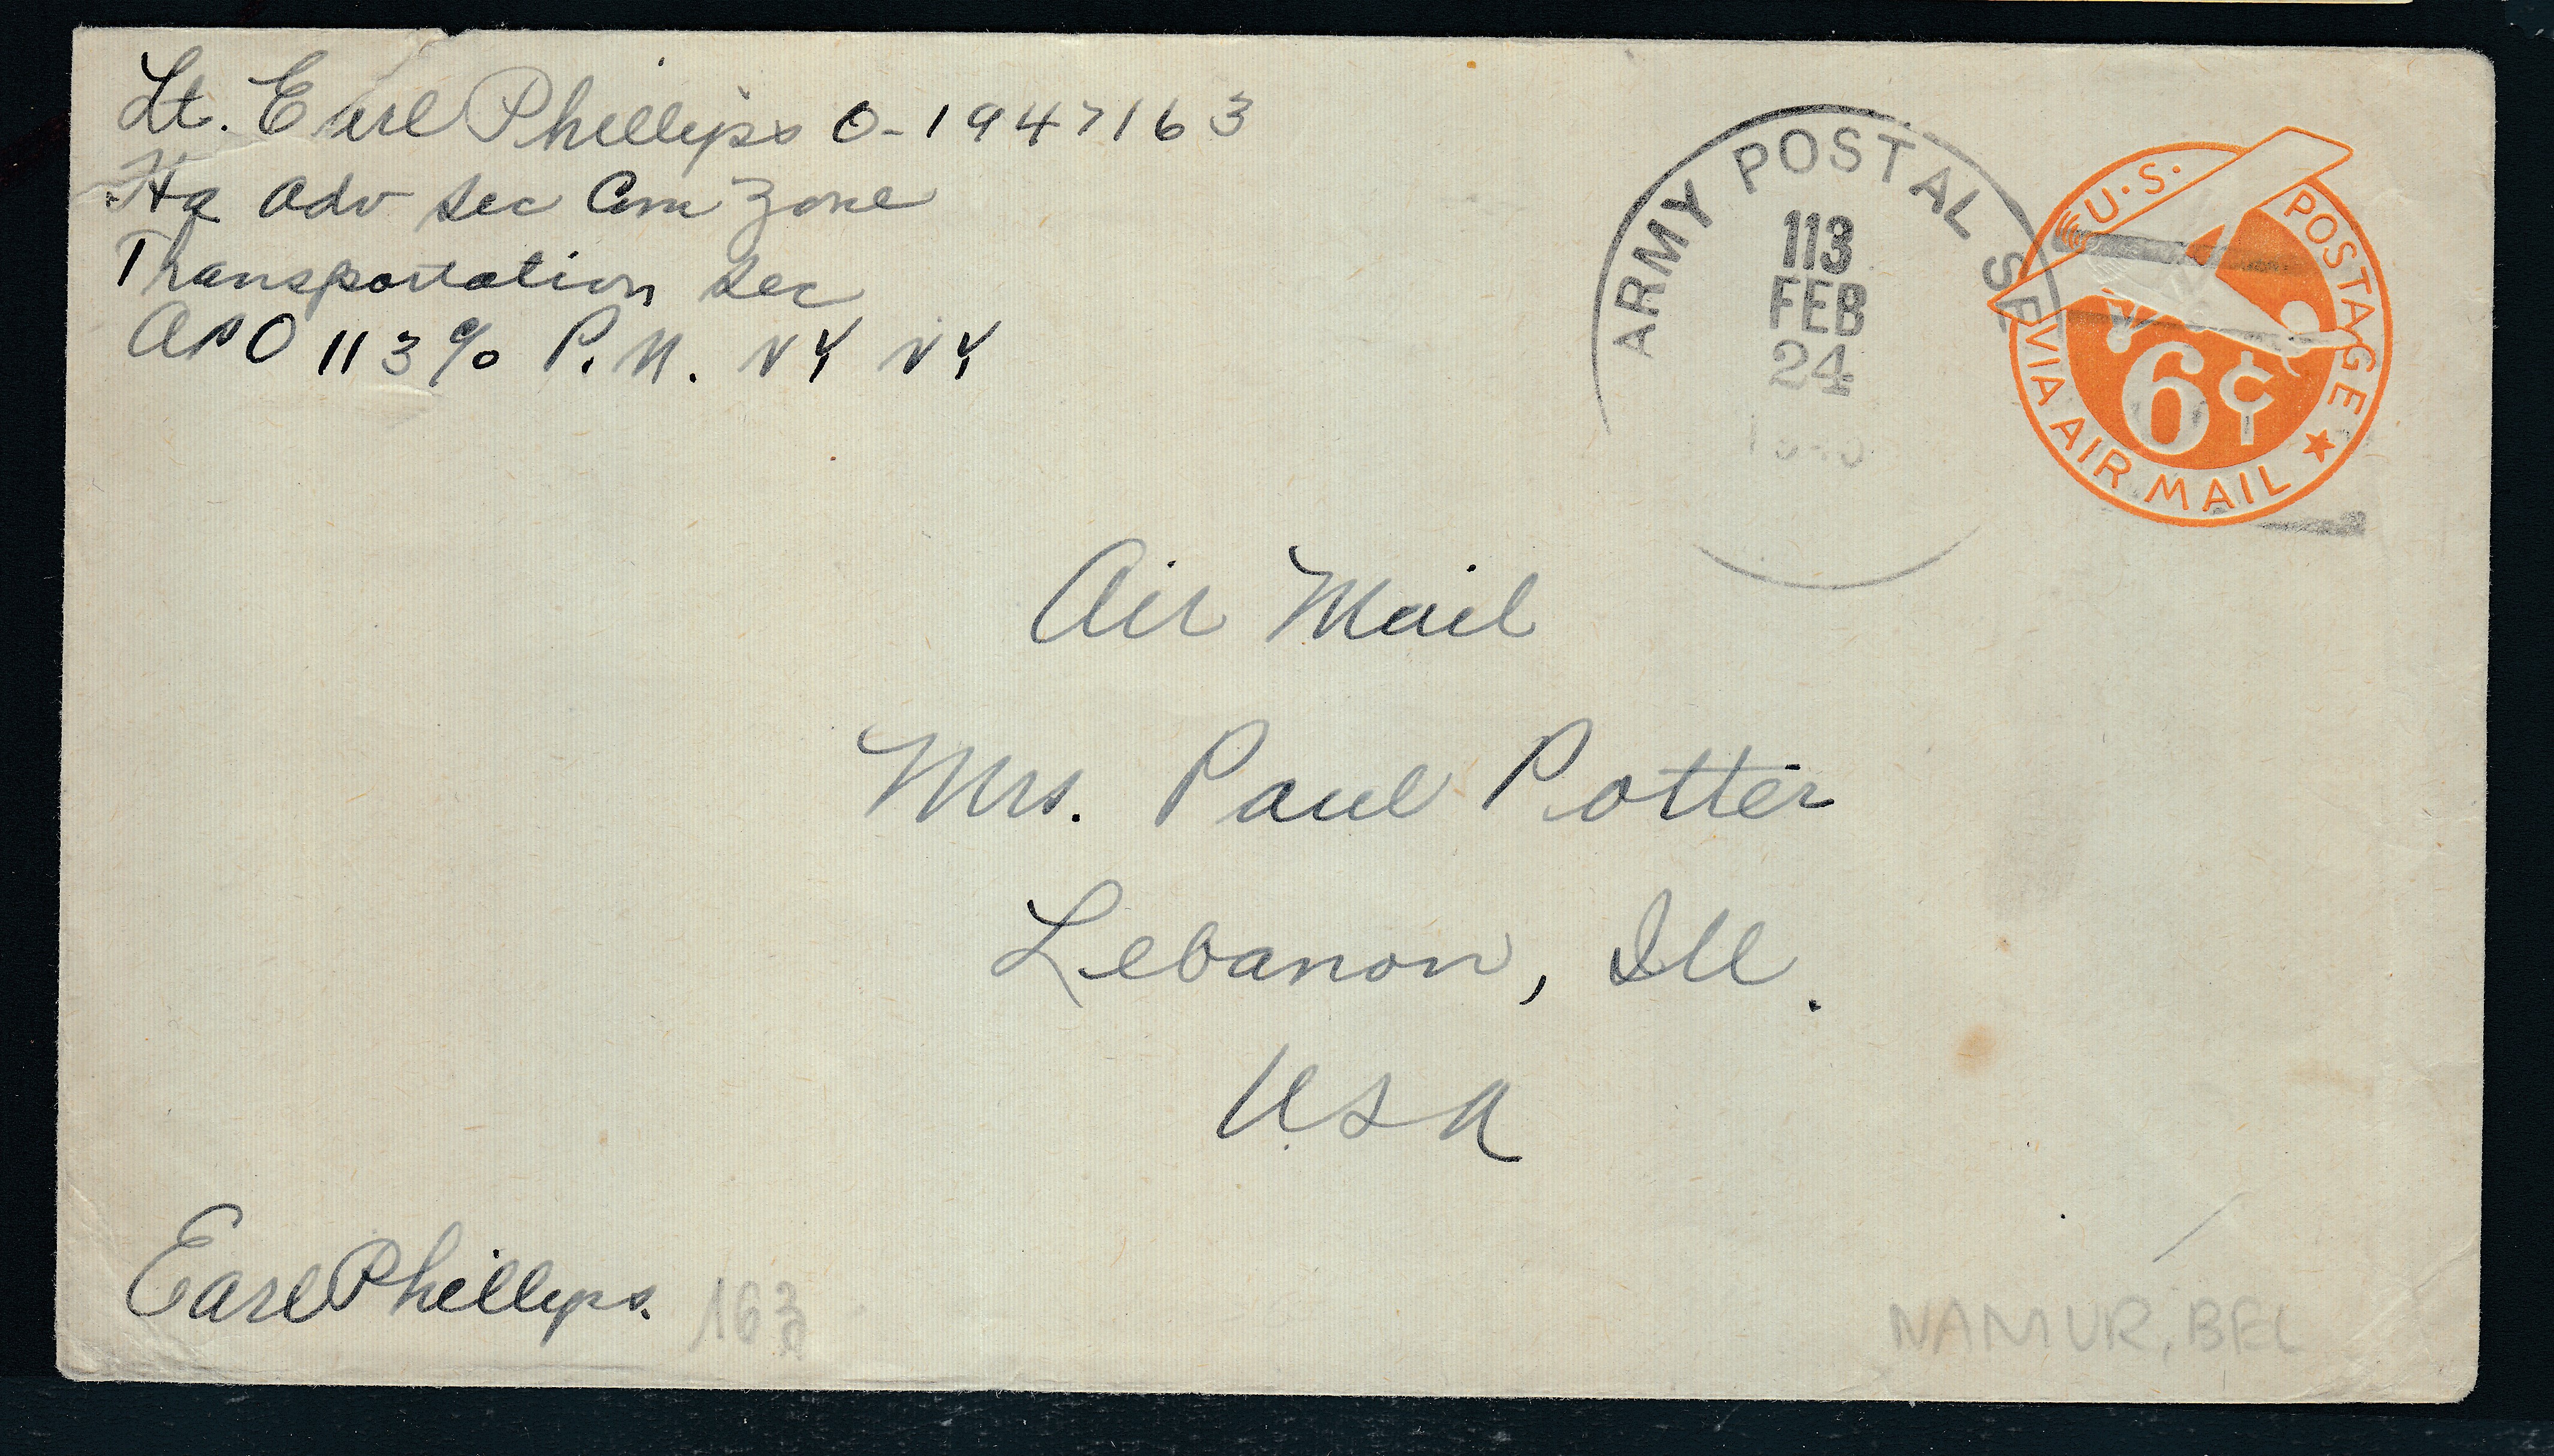 Lt. Earl Phillips O-1947163
Hq Adv Sec Com Zone
Transportation Sec
APO 113 c/o P.M. NY NY
ARMY POSTAL SE
113
FEB
24
U.S. POSTAGE
VIA AIR MAIL
6¢
Air Mail
Mrs. Paul Potter
Lebanon, Ill.
USA
Earl Phillips.
NAMUR, BEL